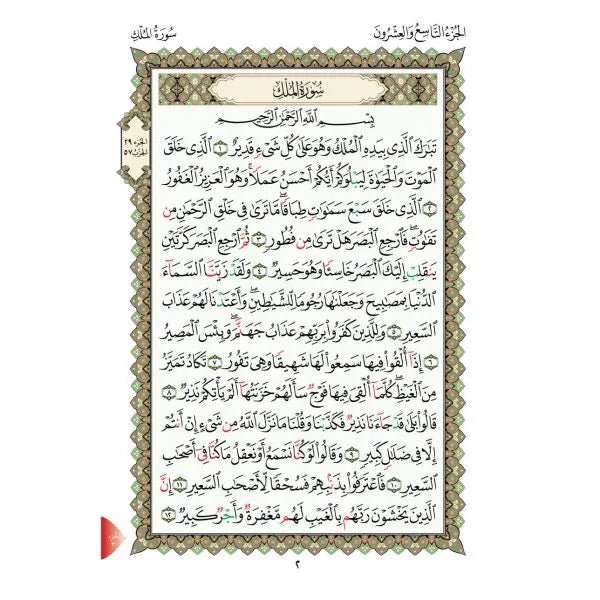 الجزء التاسع والعشرون
سورة الملك
سُورَةُ المُلْكِ
بِسْمِ اللَّهِ الرَّحْمَٰنِ الرَّحِيمِ
الجزء ٢٩
الحزب ٥٧
تَبَٰرَكَ ٱلَّذِي بِيَدِهِ ٱلْمُلْكُ وَهُوَ عَلَىٰ كُلِّ شَىْءٍ قَدِيرٌ ١ ٱلَّذِى خَلَقَ
ٱلْمَوْتَ وَٱلْحَيَوٰةَ لِيَبْلُوَكُمْ أَيُّكُمْ أَحْسَنُ عَمَلًا ۚ وَهُوَ ٱلْعَزِيزُ ٱلْغَفُورُ
٢ ٱلَّذِى خَلَقَ سَبْعَ سَمَٰوَٰتٍ طِبَاقًا ۖ مَّا تَرَىٰ فِى خَلْقِ ٱلرَّحْمَٰنِ مِن
تَفَٰوُتٍ ۖ فَٱرْجِعِ ٱلْبَصَرَ هَلْ تَرَىٰ مِن فُطُورٍ ٣ ثُمَّ ٱرْجِعِ ٱلْبَصَرَ كَرَّتَيْنِ
يَنقَلِبْ إِلَيْكَ ٱلْبَصَرُ خَاسِئًا وَهُوَ حَسِيرٌ ٤ وَلَقَدْ زَيَّنَّا ٱلسَّمَآءَ
ٱلدُّنْيَا بِمَصَٰبِيحَ وَجَعَلْنَٰهَا رُجُومًا لِّلشَّيَٰطِينِ ۖ وَأَعْتَدْنَا لَهُمْ عَذَابَ
ٱلسَّعِيرِ ٥ وَلِلَّذِينَ كَفَرُوا۟ بِرَبِّهِمْ عَذَابُ جَهَنَّمَ ۖ وَبِئْسَ ٱلْمَصِيرُ
٦ إِذَآ أُلْقُوا۟ فِيهَا سَمِعُوا۟ لَهَا شَهِيقًا وَهِىَ تَفُورُ ٧ تَكَادُ تَمَيَّزُ
مِنَ ٱلْغَيْظِ ۖ كُلَّمَآ أُلْقِىَ فِيهَا فَوْجٌ سَأَلَهُمْ خَزَنَتُهَآ أَلَمْ يَأْتِكُمْ نَذِيرٌ ٨
قَالُوا۟ بَلَىٰ قَدْ جَآءَنَا نَذِيرٌ فَكَذَّبْنَا وَقُلْنَا مَا نَزَّلَ ٱللَّهُ مِن شَىْءٍ إِنْ أَنتُمْ
إِلَّا فِى ضَلَٰلٍ كَبِيرٍ ٩ وَقَالُوا۟ لَوْ كُنَّا نَسْمَعُ أَوْ نَعْقِلُ مَا كُنَّا فِىٓ أَصْحَٰبِ
ٱلسَّعِيرِ ١٠ فَٱعْتَرَفُوا۟ بِذَنۢبِهِمْ فَسُحْقًا لِّأَصْحَٰبِ ٱلسَّعِيرِ ١١ إِنَّ
ٱلَّذِينَ يَخْشَوْنَ رَبَّهُم بِٱلْغَيْبِ لَهُم مَّغْفِرَةٌ وَأَجْرٌ كَبِيرٌ ١٢
٢